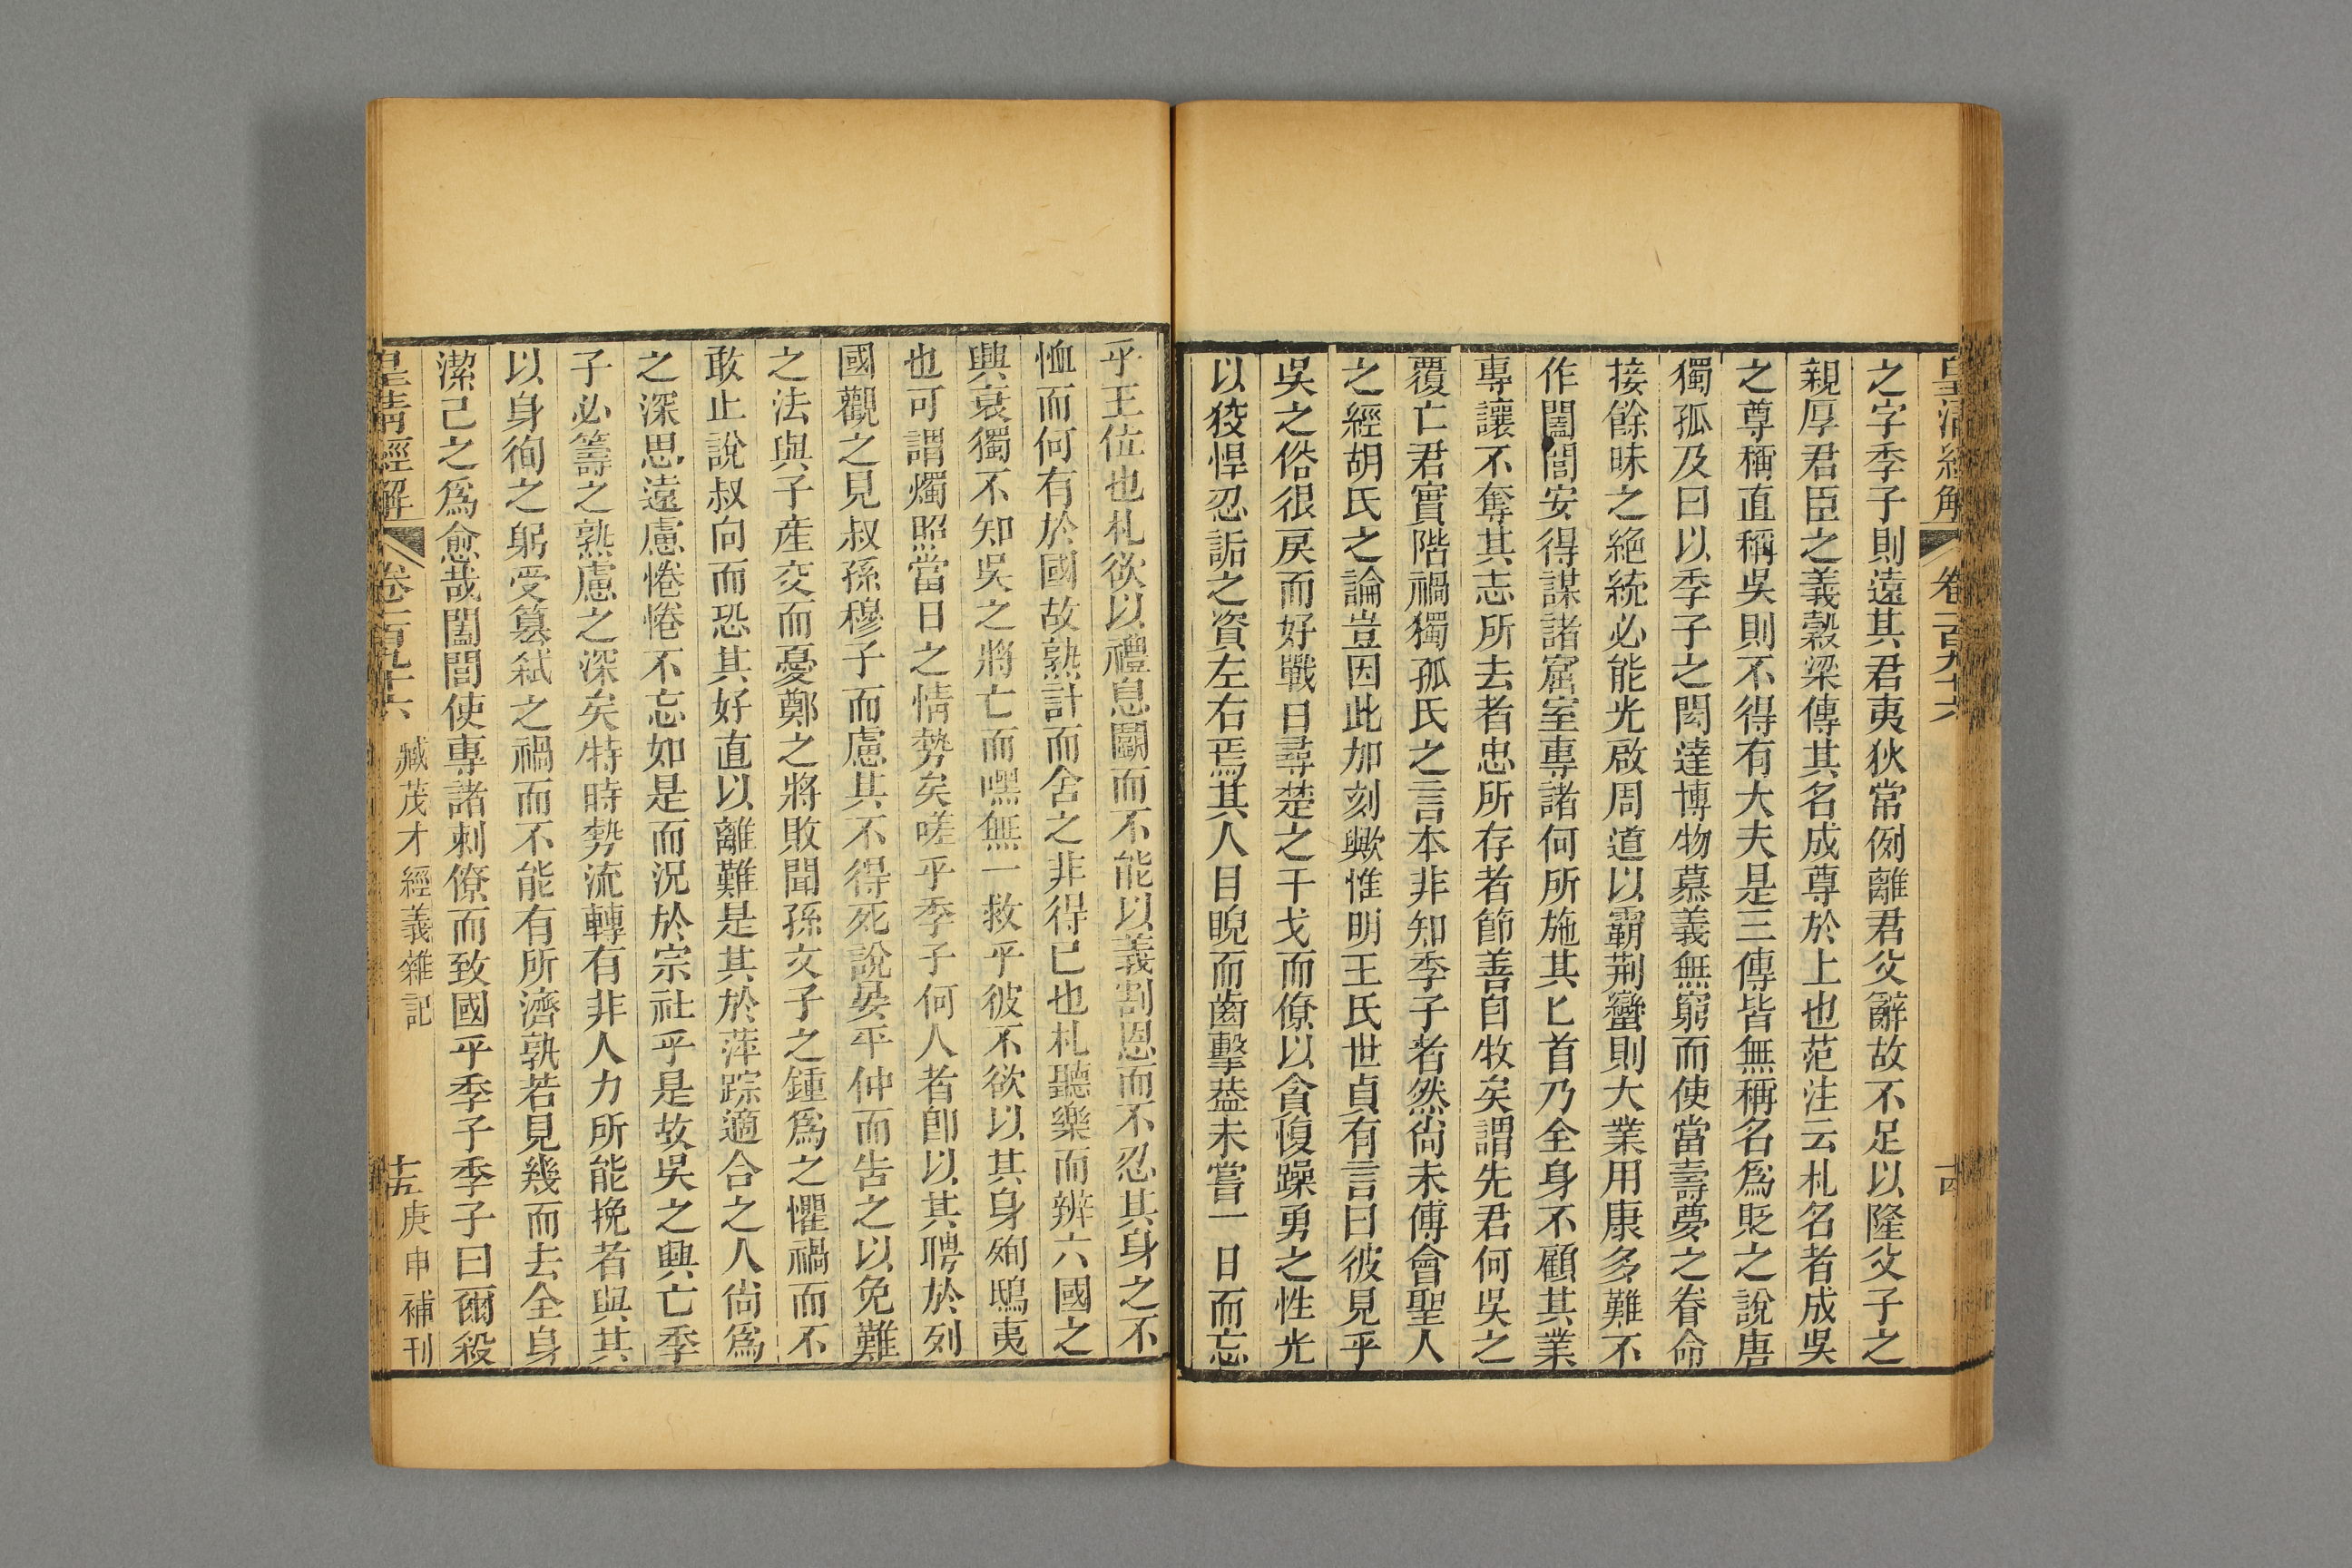 皇清經解 卷一百九十六 十四
之字季子則遠其君夷狄常例離君父辭故不足以隆父子之
親厚君臣之義穀梁傳其名成尊於上也范注云札名者成吳
之尊稱直稱吳則不得有大夫是三傳皆無稱名爲貶之說唐
獨孤及曰以季子之閎達博物慕義無窮而使當壽夢之眷命
接餘昧之絕統必能光啟周道以霸荆蠻則大業用康多難不
作闔閭安得謀諸窟室專諸何所施其匕首乃全身不顧其業
專讓不奪其志所去者忠所存者節善自牧矣謂先君何吳之
覆亡君實階禍獨孤氏之言本非知季子者然尚未傅會聖人
之經胡氏之論豈因此加刻歟惟明王氏世貞有言曰彼見乎
吳之俗很戾而好戰日尋楚之干戈而僚以貪愎躁勇之性光
以狡悍忍詬之資左右焉其人目睨而齒擊葢未嘗一日而忘
乎王位也札欲以禮息鬬而不能以義割恩而不忍其身之不
恤而何有於國故熟計而舍之非得已也札聽樂而辨六國之
興衰獨不知吳之將亡而嘿無一救乎彼不欲以其身殉鴟夷
也可謂燭照當日之情勢矣嗟乎季子何人者卽以其聘於列
國觀之見叔孫穆子而慮其不得死說晏平仲而告之以免難
之法與子產交而憂鄭之將敗聞孫文子之鍾爲之懼禍而不
敢止說叔向而恐其好直以離難是其於萍踪適合之人尙爲
之深思遠慮惓惓不忘如是而況於宗社乎是故吳之興亡季
子必籌之熟慮之深矣特時勢流轉有非人力所能挽者與其
以身徇之躬受篡弒之禍而不能有所濟孰若見幾而去全身
潔己之爲愈哉闔閭使專諸刺僚而致國乎季子季子曰爾殺
皇清經解 卷一百九十六 臧茂才經義雜記 十五 庚申補刊